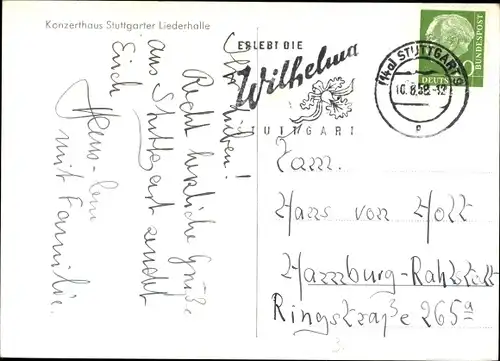 Konzerthaus Stuttgarter Liederhalle
Ihr Lieben!
Recht herzliche Grüße
aus Stuttgart sendet
Euch
mit Familie.
ERLEBT DIE
Wilhelma
STUTTGART
(14a) STUTTGART 9
10.8.58.-12
DEUTSCHE
BUNDESPOST
Fam.
Hans von Holt
Hamburg-Rahlstedt
Ringstraße 265a